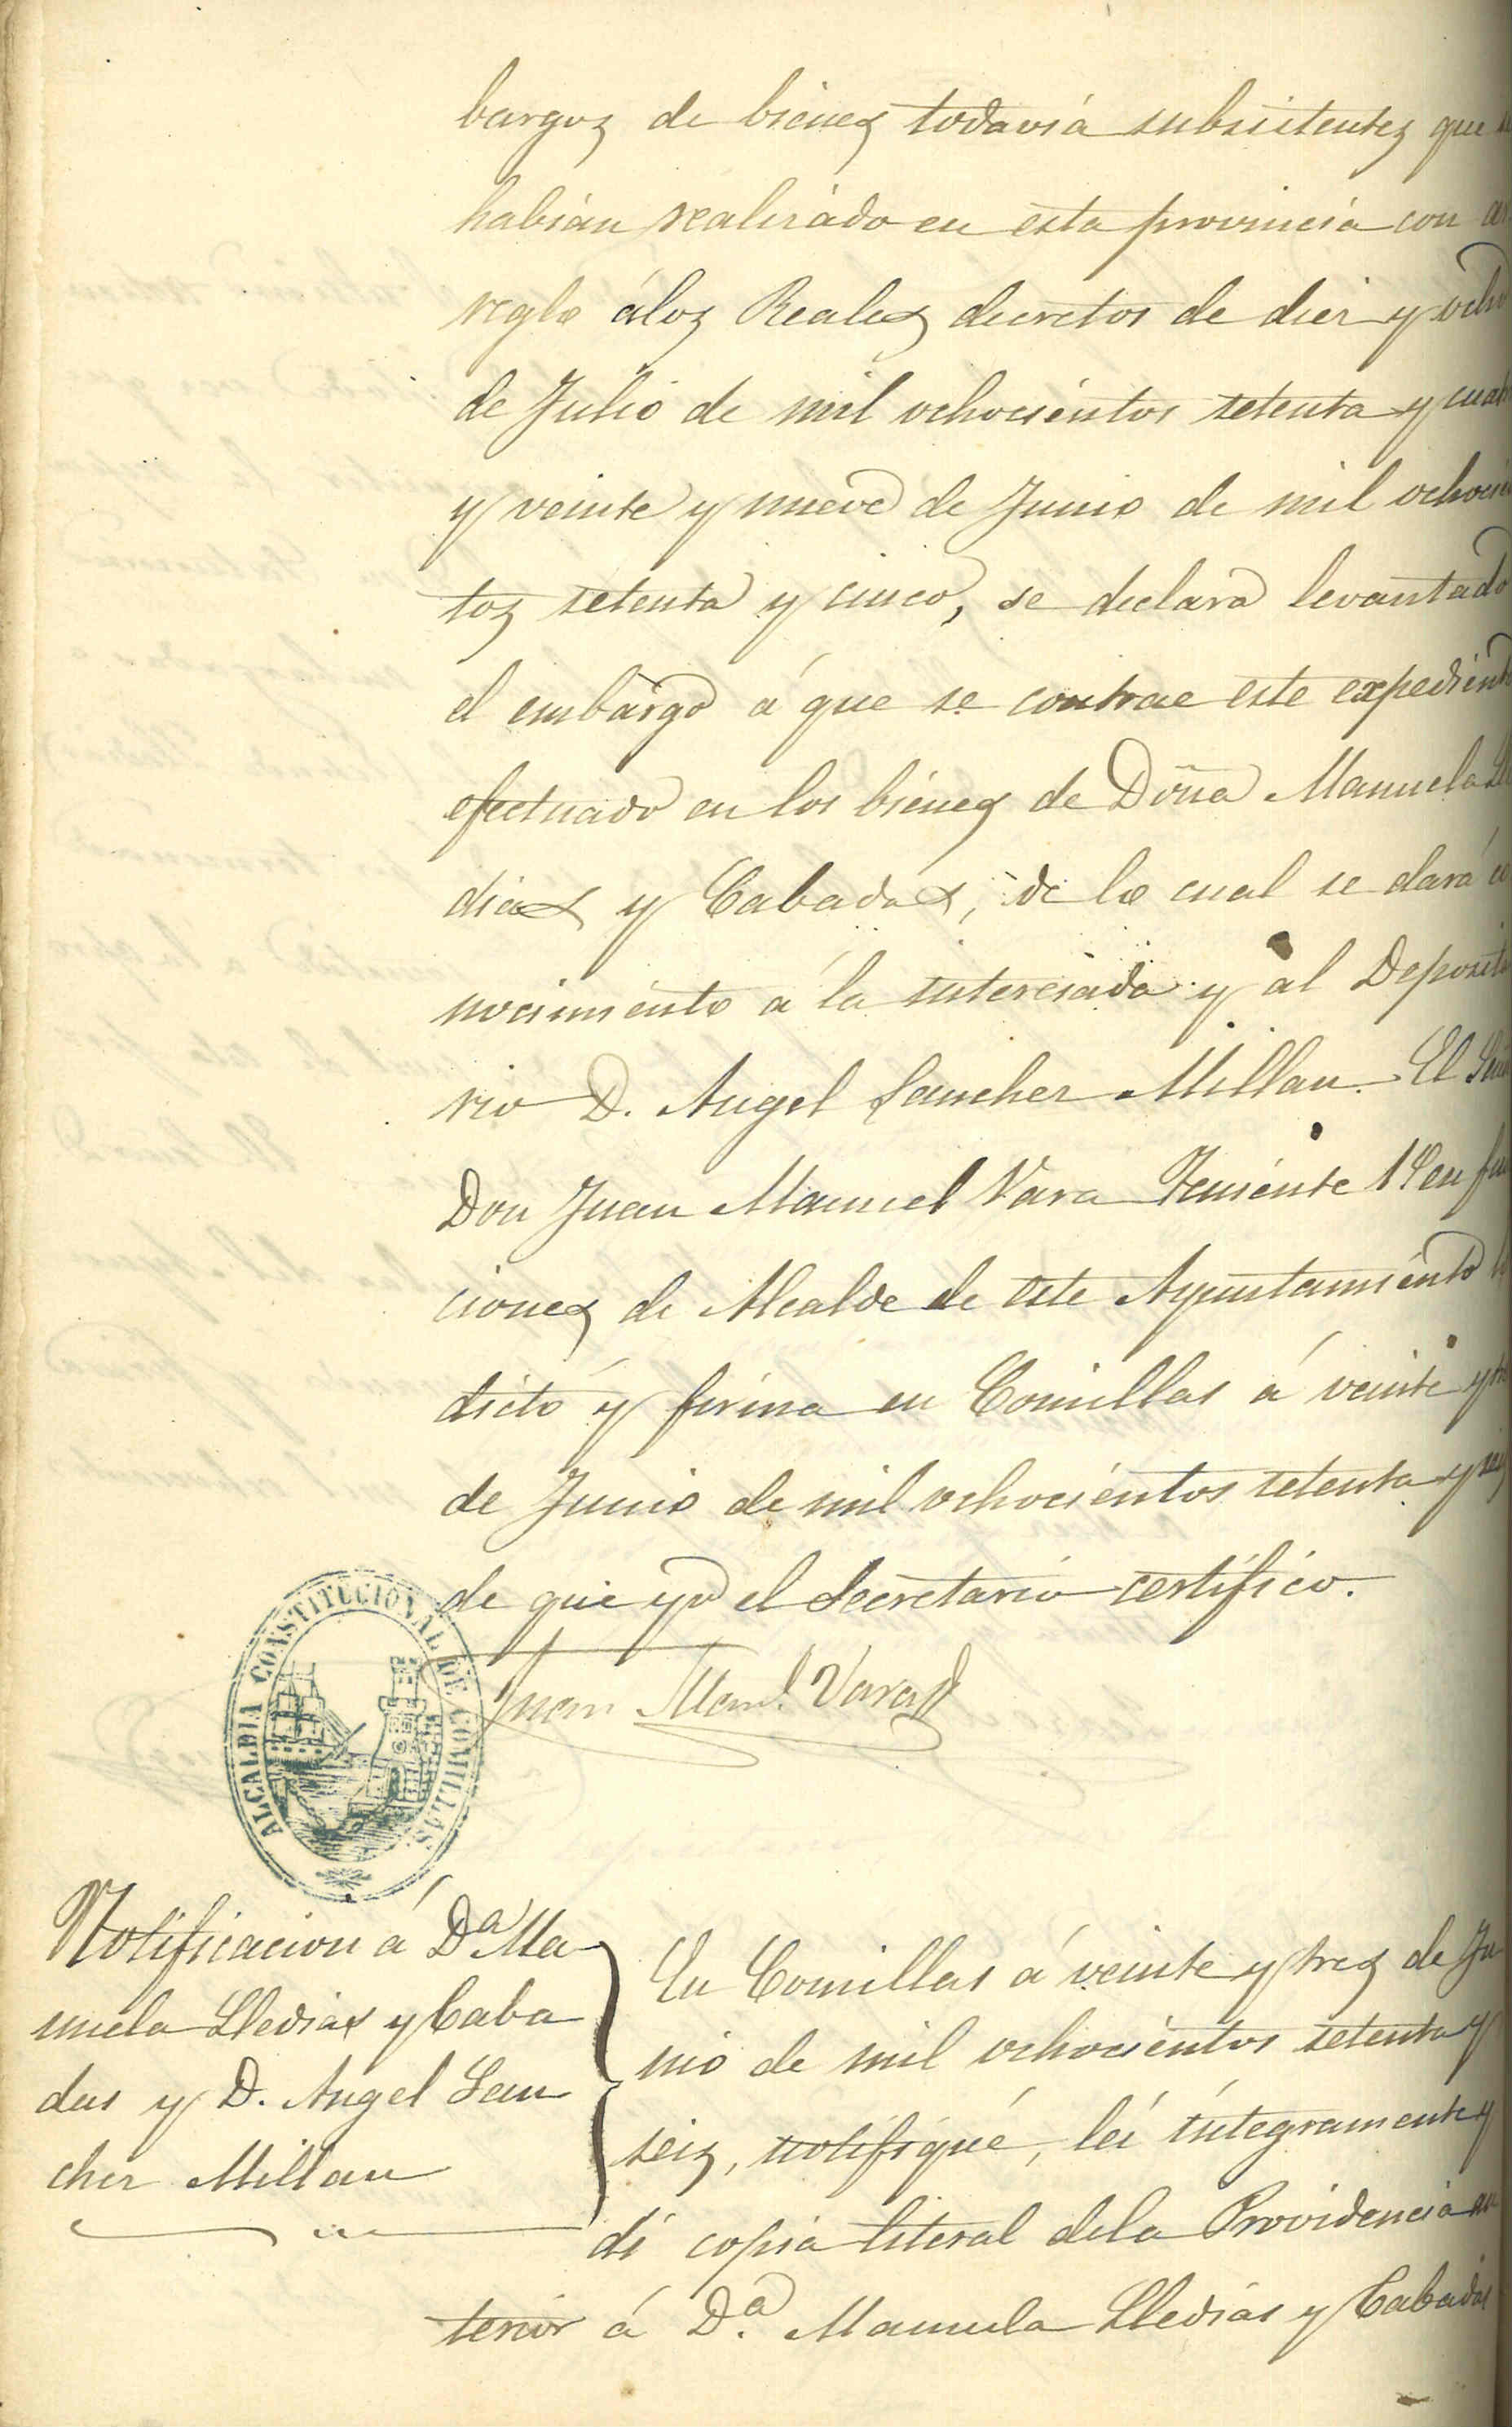 bargos de bienes todavia subsistentes que
habian realizado en esta provincia con ar
reglo á los Reales decretos de diez y ocho
de Julio de mil ochocientos setenta y cuatro
y veinte y nueve de Junio de mil ochocien
tos setenta y cinco, se declara levantado
el embargo á que se contrae este expediente
efectuado en los bienes de Doña Manuela Lle
dias y Cabadas, de lo cual se dará co
nocimiento á la interesada y al Deposita
rio D. Angel Sanchez Millan. El Señor
Don Juan Manuel Vara Teniente 1º en fun
ciones de Alcalde de este Ayuntamiento lo
dictó y firma en Comillas á veinte y tres
de Junio de mil ochocientos setenta y seis
de que yo el Secretario certifico.
Juan Man.l Vara
ALCALDIA CONSTITUCIONAL DE COMILLAS
Notificacion á D.a Ma
nuela Lledias y Caba
das y D. Angel San
chez Millan
En Comillas á veinte y tres de Ju
nio de mil ochocientos setenta y
seis, notifiqué, leí íntegramente y
dí copia literal de la Providencia an
terior á D.a Manuela Lledias y Cabadas